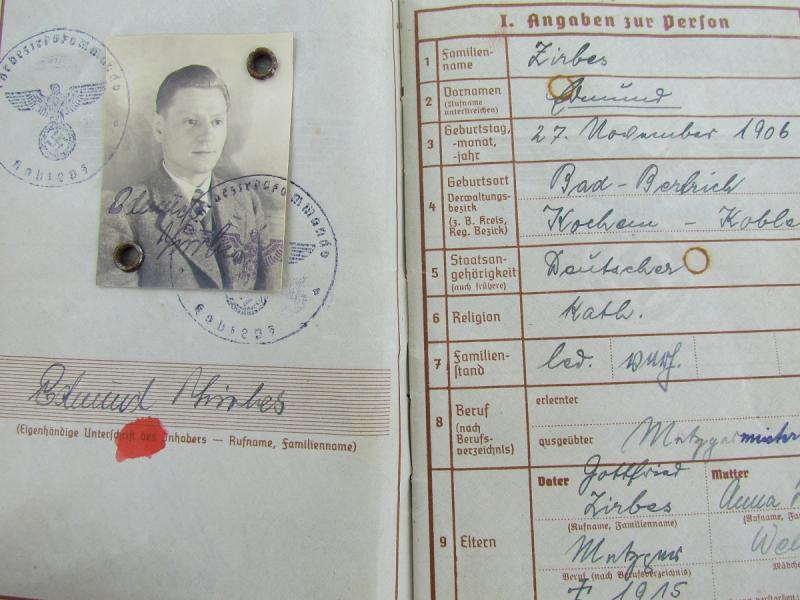 Koblenz
Koblenz
Edmund Zirbes
(Eigenhändige Unterschrift des Inhabers — Rufname, Familienname)
I. Angaben zur Person
1 Familien-
name
Zirbes
2 Vornamen
(Rufname
unterstreichen)
Edmund
3 Geburtstag,
-monat,
-jahr
27. November 1906
4 Geburtsort
Verwaltungs-
bezirk
(z. B. Kreis,
Reg. Bezirk)
Bad-Bertrich
Kochem - Koble
5 Staatsan-
gehörigkeit
(auch frühere)
Deutscher
6 Religion
Kath.
7 Familien-
stand
led. verh.
8 Beruf
(nach
Berufs-
verzeichnis)
erlernter
ausgeübter
Metzgermeister
9 Eltern
Vater Gottfried
Zirbes
(Rufname, Familienname)
Metzger
Beruf (nach Berufsverzeichnis)
† 1915
Mutter
Anna
(Rufname, Fa